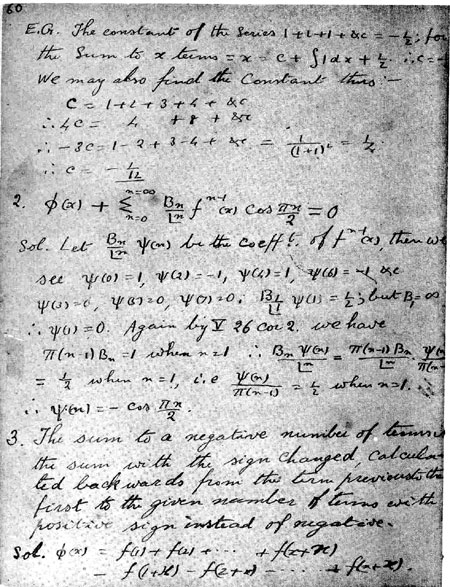 60
E.G. The constant of the Series 1+1+1+&c = -½; for
the Sum to x terms = x = c + ∫1dx + ½ ∴ c = -
We may also find the Constant thus —
C = 1+2+3+4+ &c
∴ 4C = 4 + 8 + &c
∴ -3C = 1-2+3-4+&c = 1/(1+1)² = ¼
∴ C = -1/12
2. φ(x) + Σ_{n=0}^{n=∞} Bn/|n f^{n-1}(x) cos πn/2 = 0
Sol. Let Bn/|n ψ(n) be the coeff t. of f^{n-1}(x), then we
see ψ(0)=1, ψ(2)=-1, ψ(4)=1, ψ(6)=-1 &c
ψ(3)=0, ψ(5)=0, ψ(7)=0; B1/|1 ψ(1) = ½; but B1=∞
∴ ψ(1)=0. Again by V 26 cor 2. we have
π(n-1)Bn = 1 when n=1 ∴ Bn ψ(n)/|n = π(n-1)Bn/|n · ψ(n)/π(n-1)
= ½ when n=1, i.e. ψ(n)/π(n-1) = ½ when n=1.
∴ ψ(n) = - cos πn/2.
3. The sum to a negative number of terms is
the sum with the sign changed, calcula-
ted backwards from the term previous to the
first to the given number of terms with
positive sign instead of negative.
Sol. φ(x) = f(1) + f(2) + ···· + f(x+n)
- f(1+x) - f(2+x) - ···· + f(n+x).